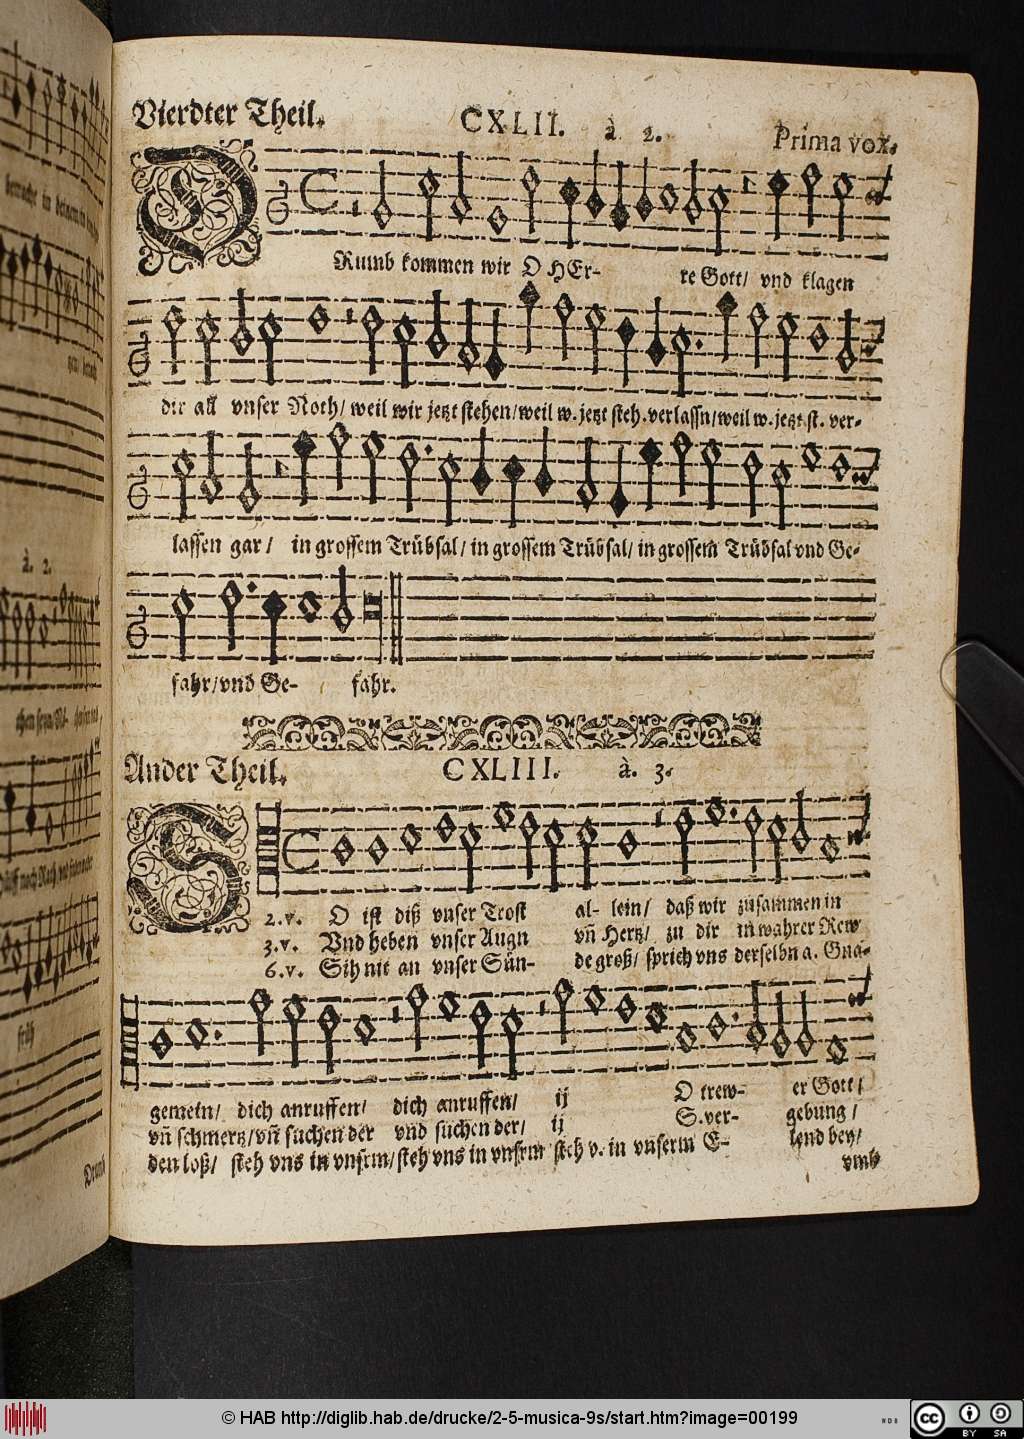 Vierdter Theil.
CXLII. à 2.
Prima vox.
DRumb kommen wir O HEr- re Gott/ vnd klagen
dir all vnser Noth/ weil wir jetzt stehen/weil w. jetzt steh. verlassn/weil w. jetzt st. ver-
lassen gar/ in grossem Trübsal/ in grossem Trübsal/ in grossem Trübsal vnd Ge-
fahr/vnd Ge- fahr.
Ander Theil.
CXLIII. à. 3.
S
2.v. O ist diß vnser Trost al- lein/ daß wir zusammen in
3.v. Vnd heben vnser Augn vñ Hertz/ zu dir in wahrer Rew
6.v. Sih nit an vnser Sün- de groß/ sprich vns derselbn a. Gna-
gemein/ dich anruffen/ dich anruffen/ ij O trew- er Gott/
vñ schmertz/vñ suchen der vnd suchen der/ ij S.ver- gebung/
den loß/ steh vns in vnsrm/steh vns in vnsrm steh v. in vnserm E- lend bey/
vmb
à. 2.
früh
Drumb
© HAB http://diglib.hab.de/drucke/2-5-musica-9s/start.htm?image=00199
cc BY SA